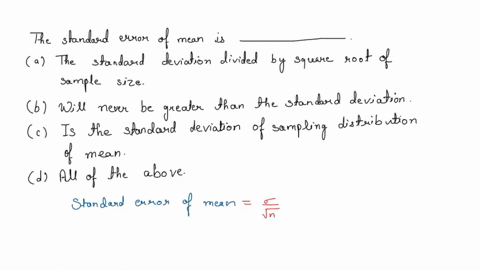 The standard error of mean is ____________.
(a) The standard deviation divided by square root of
sample size.
(b) Will never be greater than the standard deviation.
(c) Is the standard deviation of sampling distribution
of mean.
(d) All of the above.
Standard error of mean = σ/√n